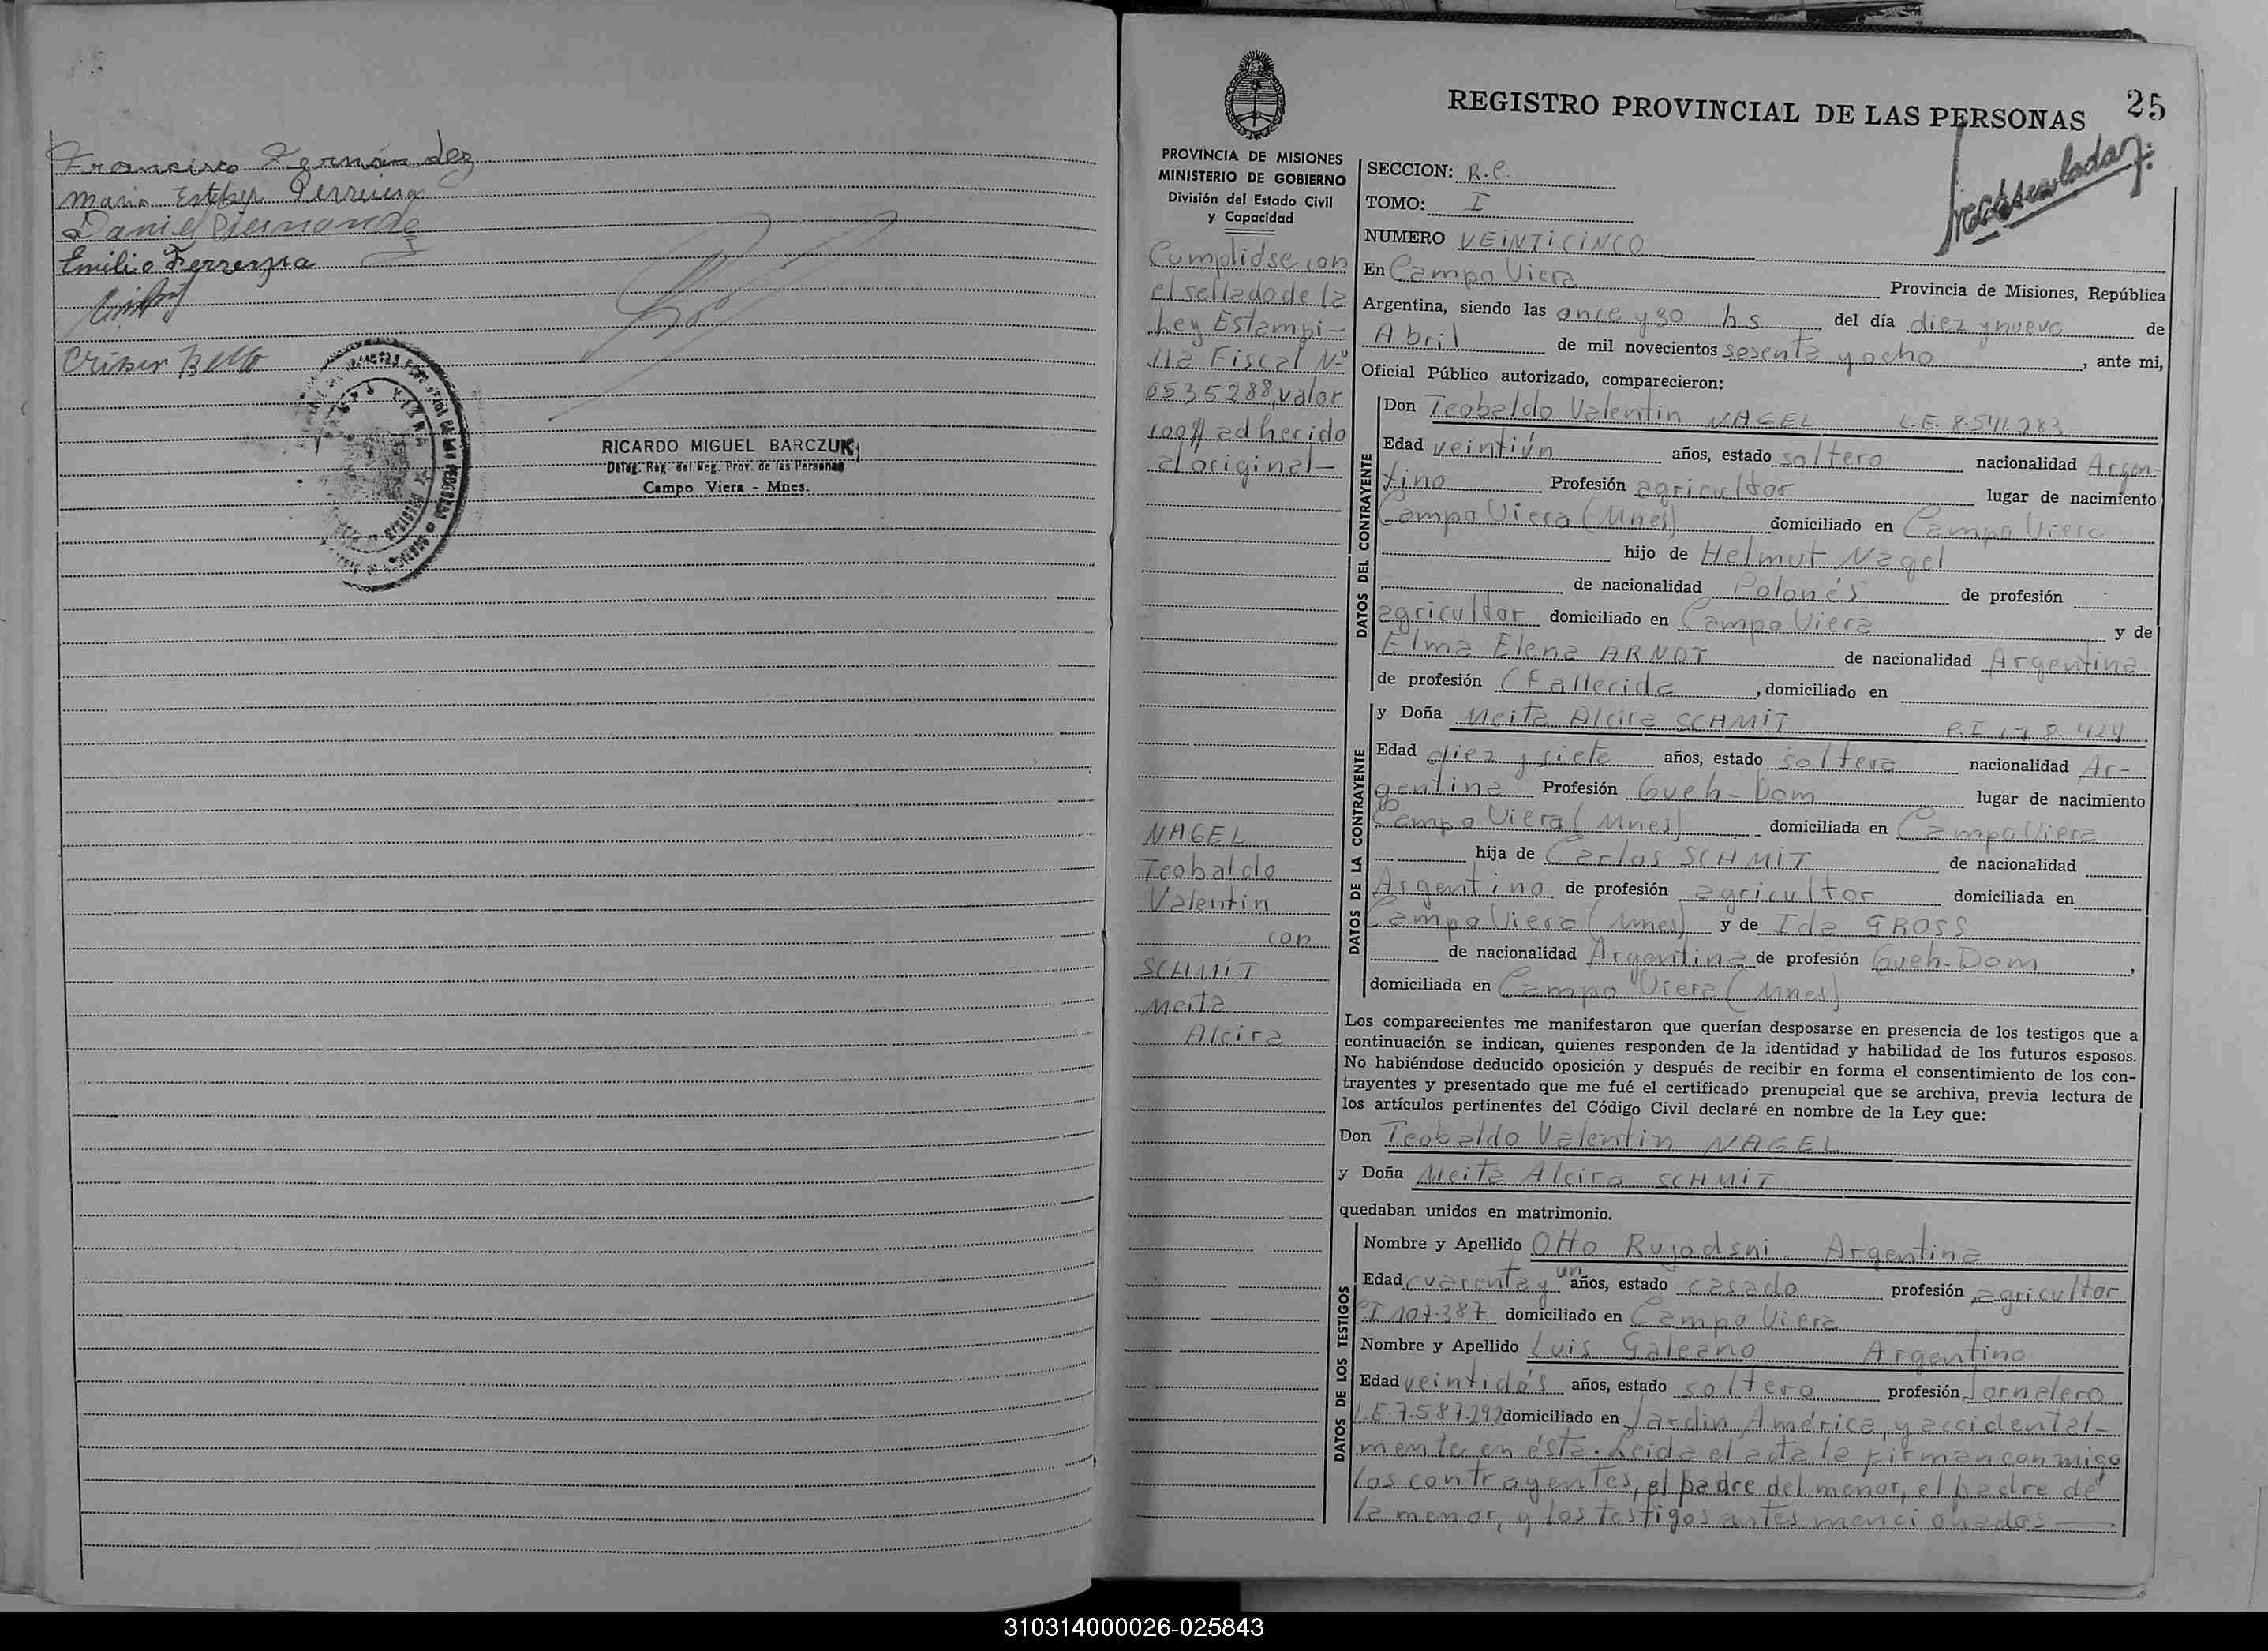 Francisco Fernández
Maria Esther Ferreira
Daniel
Emilio Ferreyra
RICARDO MIGUEL BARCZUK
Deleg. Reg. del Reg. Prov. de las Personas
Campo Viera - Mnes.
25
REGISTRO PROVINCIAL DE LAS PERSONAS
PROVINCIA DE MISIONES
MINISTERIO DE GOBIERNO
División del Estado Civil
y Capacidad
Cumplióse con
el sellado de la
Ley Estampi-
lla Fiscal Nº
0535288, valor
100$ adherido
al original-
NAGEL
Teobaldo
Valentin
con
SCHMIT
Meita
Alcira
SECCION: R.C.
TOMO: I
NUMERO VEINTICINCO
En Campo Viera Provincia de Misiones, República
Argentina, siendo las once y 30 hs del día diez y nueve de
Abril de mil novecientos sesenta y ocho, ante mi,
Oficial Público autorizado, comparecieron:
DATOS DEL CONTRAYENTE
Don Teobaldo Valentin NAGEL L.E. 8.541.283
Edad veintiún años, estado soltero nacionalidad Argen-
tino Profesión agricultor lugar de nacimiento
Campo Viera (Mnes) domiciliado en Campo Viera
hijo de Helmut Nagel
de nacionalidad Polonés de profesión
agricultor domiciliado en Campo Viera y de
Elma Elena ARNDT de nacionalidad Argentina
de profesión (Fallecida, domiciliado en
DATOS DE LA CONTRAYENTE
y Doña Meita Alcira SCHMIT C.I 178.424
Edad diez y siete años, estado soltera nacionalidad Ar-
gentina Profesión Queh-Dom lugar de nacimiento
Campo Viera (Mnes) domiciliada en Campo Viera
hija de Carlos SCHMIT de nacionalidad
Argentino de profesión agricultor domiciliada en
Campo Viera (Mnes) y de Ida GROSS
de nacionalidad Argentina de profesión Queh-Dom,
domiciliada en Campo Viera (Mnes)
Los comparecientes me manifestaron que querían desposarse en presencia de los testigos que a
continuación se indican, quienes responden de la identidad y habilidad de los futuros esposos.
No habiéndose deducido oposición y después de recibir en forma el consentimiento de los con-
trayentes y presentado que me fué el certificado prenupcial que se archiva, previa lectura de
los artículos pertinentes del Código Civil declaré en nombre de la Ley que:
Don Teobaldo Valentin NAGEL
y Doña Meita Alcira SCHMIT
quedaban unidos en matrimonio.
DATOS DE LOS TESTIGOS
Nombre y Apellido Otto Rujodsni Argentina
Edad cuarenta y un años, estado casado profesión agricultor
CI 107.387 domiciliado en Campo Viera
Nombre y Apellido Luis Galeano Argentino
Edad veintidós años, estado soltero profesión Jornalero
L.E. 7.587.292 domiciliado en Jardin América, y accidental-
mente en ésta. Leida el acta la firman conmigo
los contrayentes, el padre del menor, el padre de
la menor, y los testigos antes mencionados
310314000026-025843